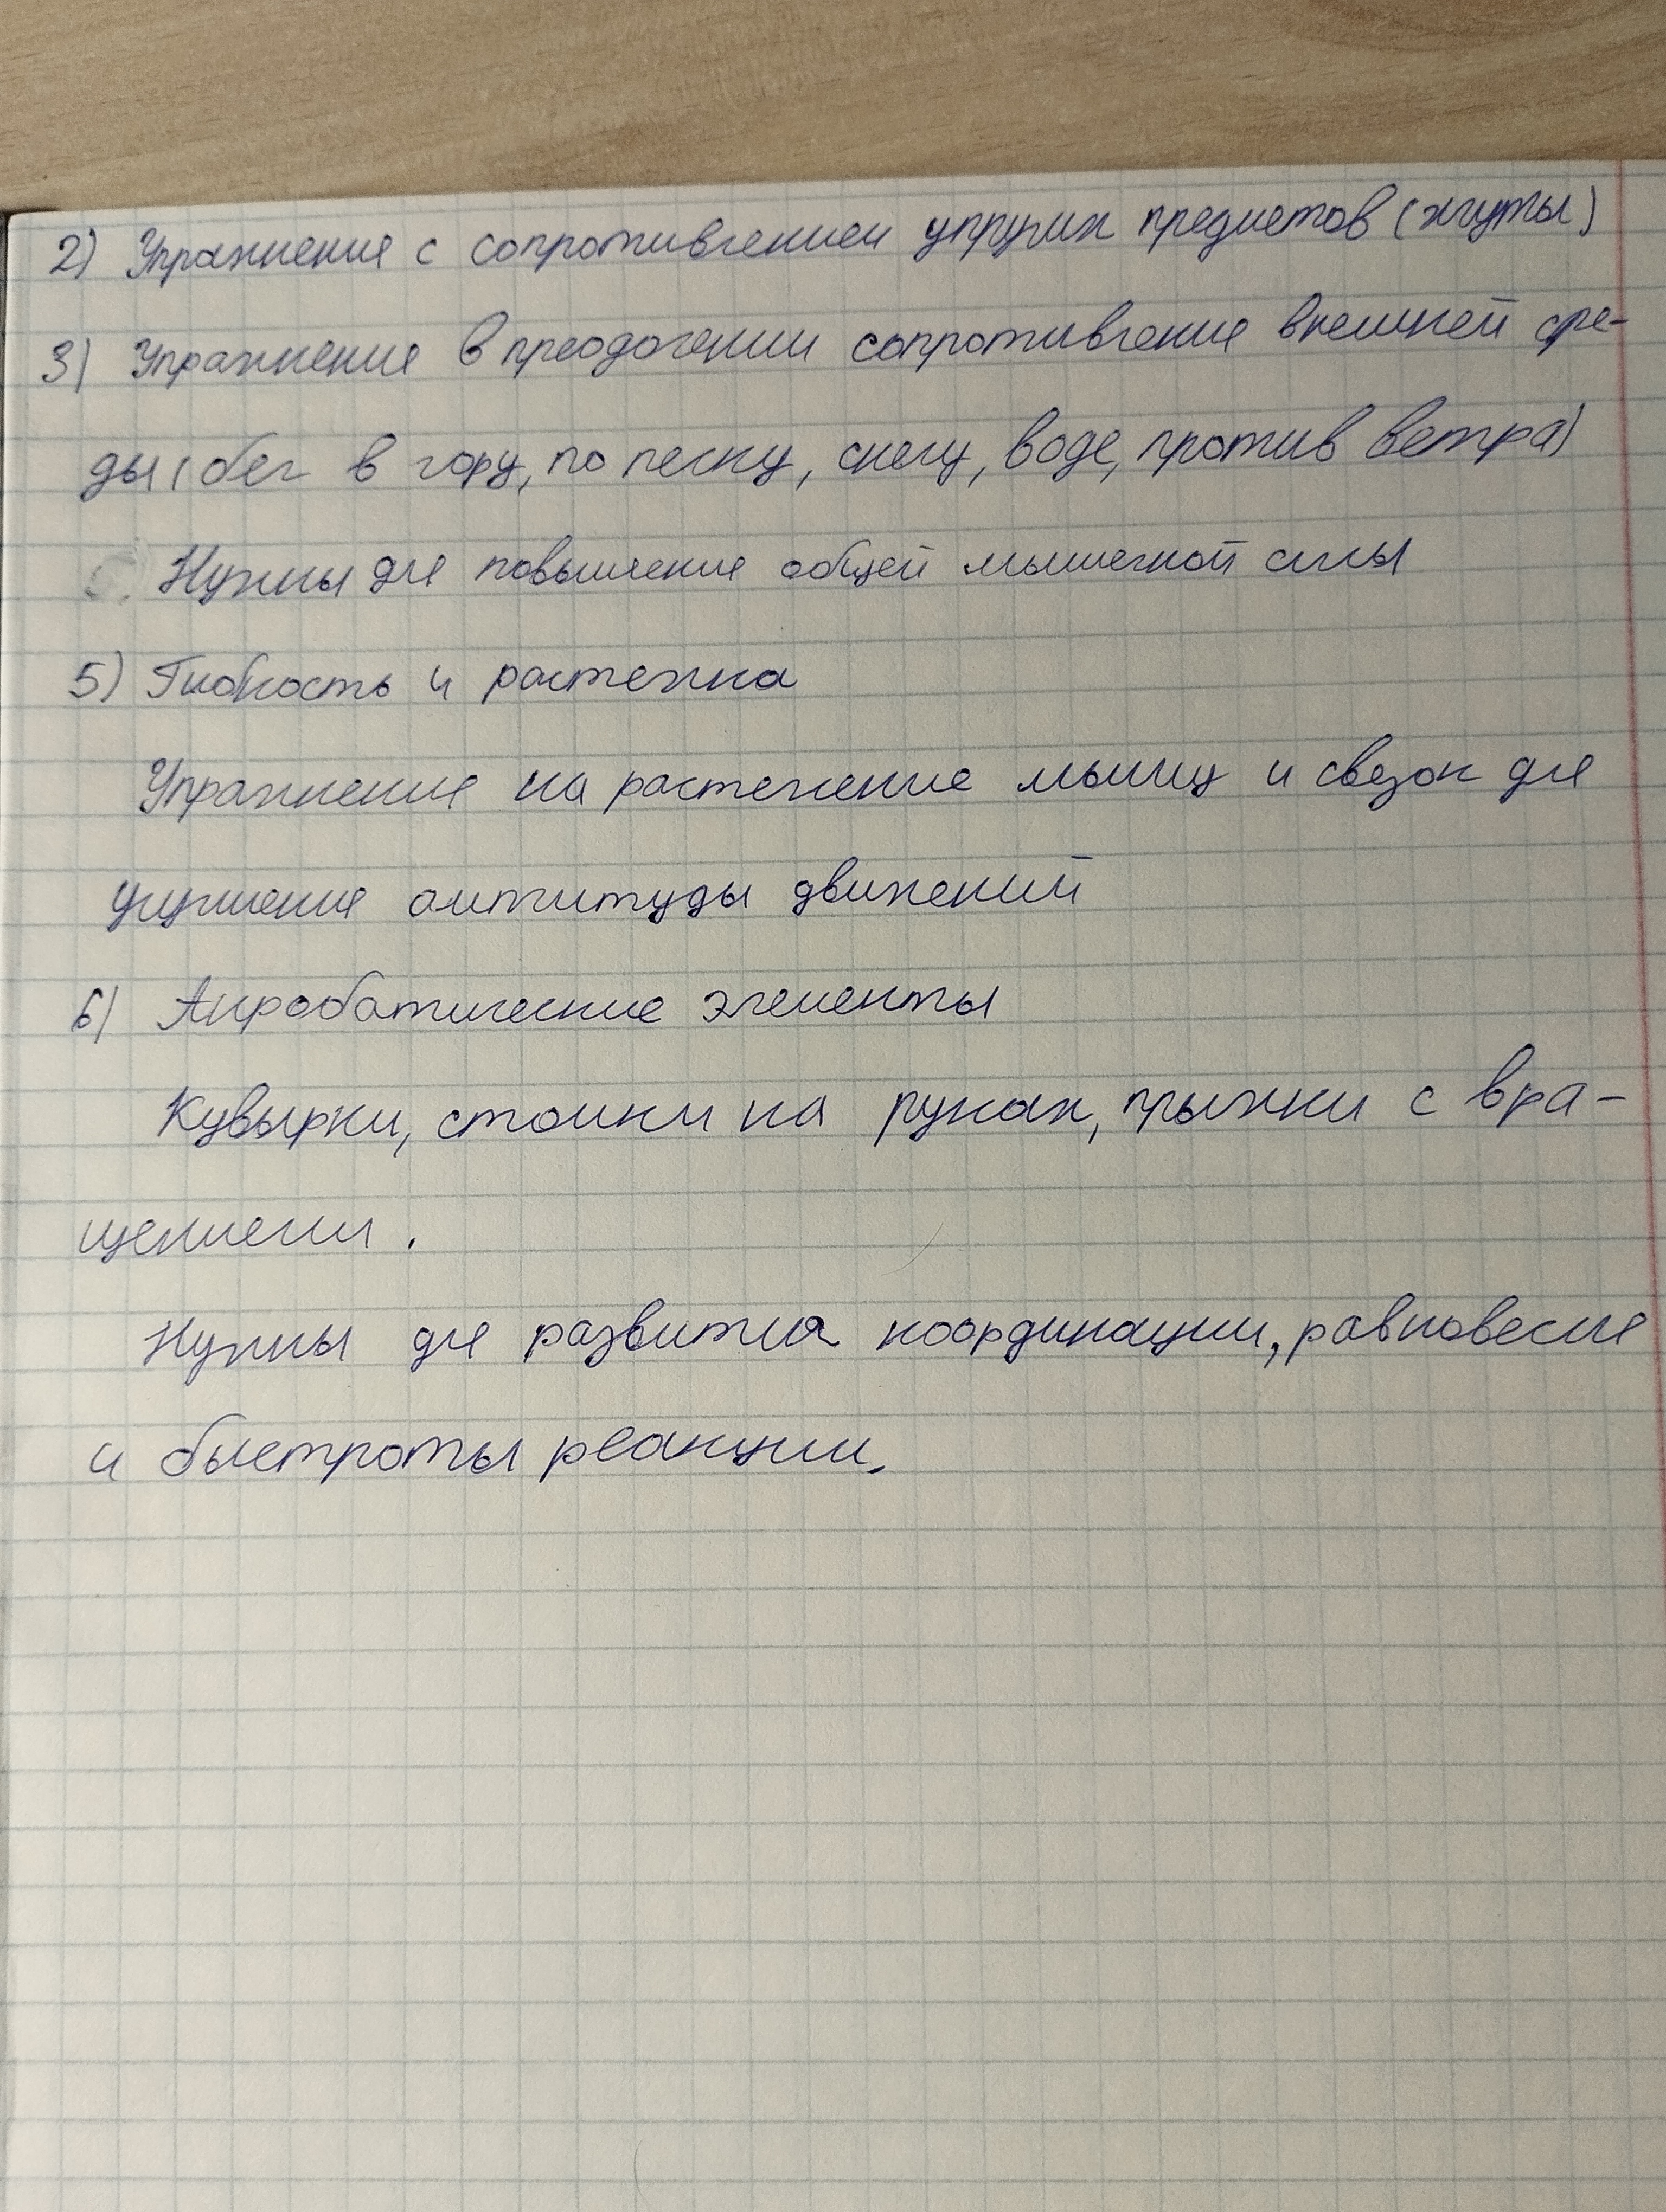 2) Упражнения с сопротивлением упругих предметов (жгуты)
3) Упражнения в преодолении сопротивления внешней сре-
ды (бег в гору, по песку, снегу, воде, против ветра)
Нужны для повышения общей мышечной силы
5) Гибкость и растяжка
Упражнения на растяжение мышц и связок для
улучшения амплитуды движений
6) Акробатические элементы
Кувырки, стойки на руках, прыжки с вра-
щением.
Нужны для развития координации, равновесия
и быстроты реакции.